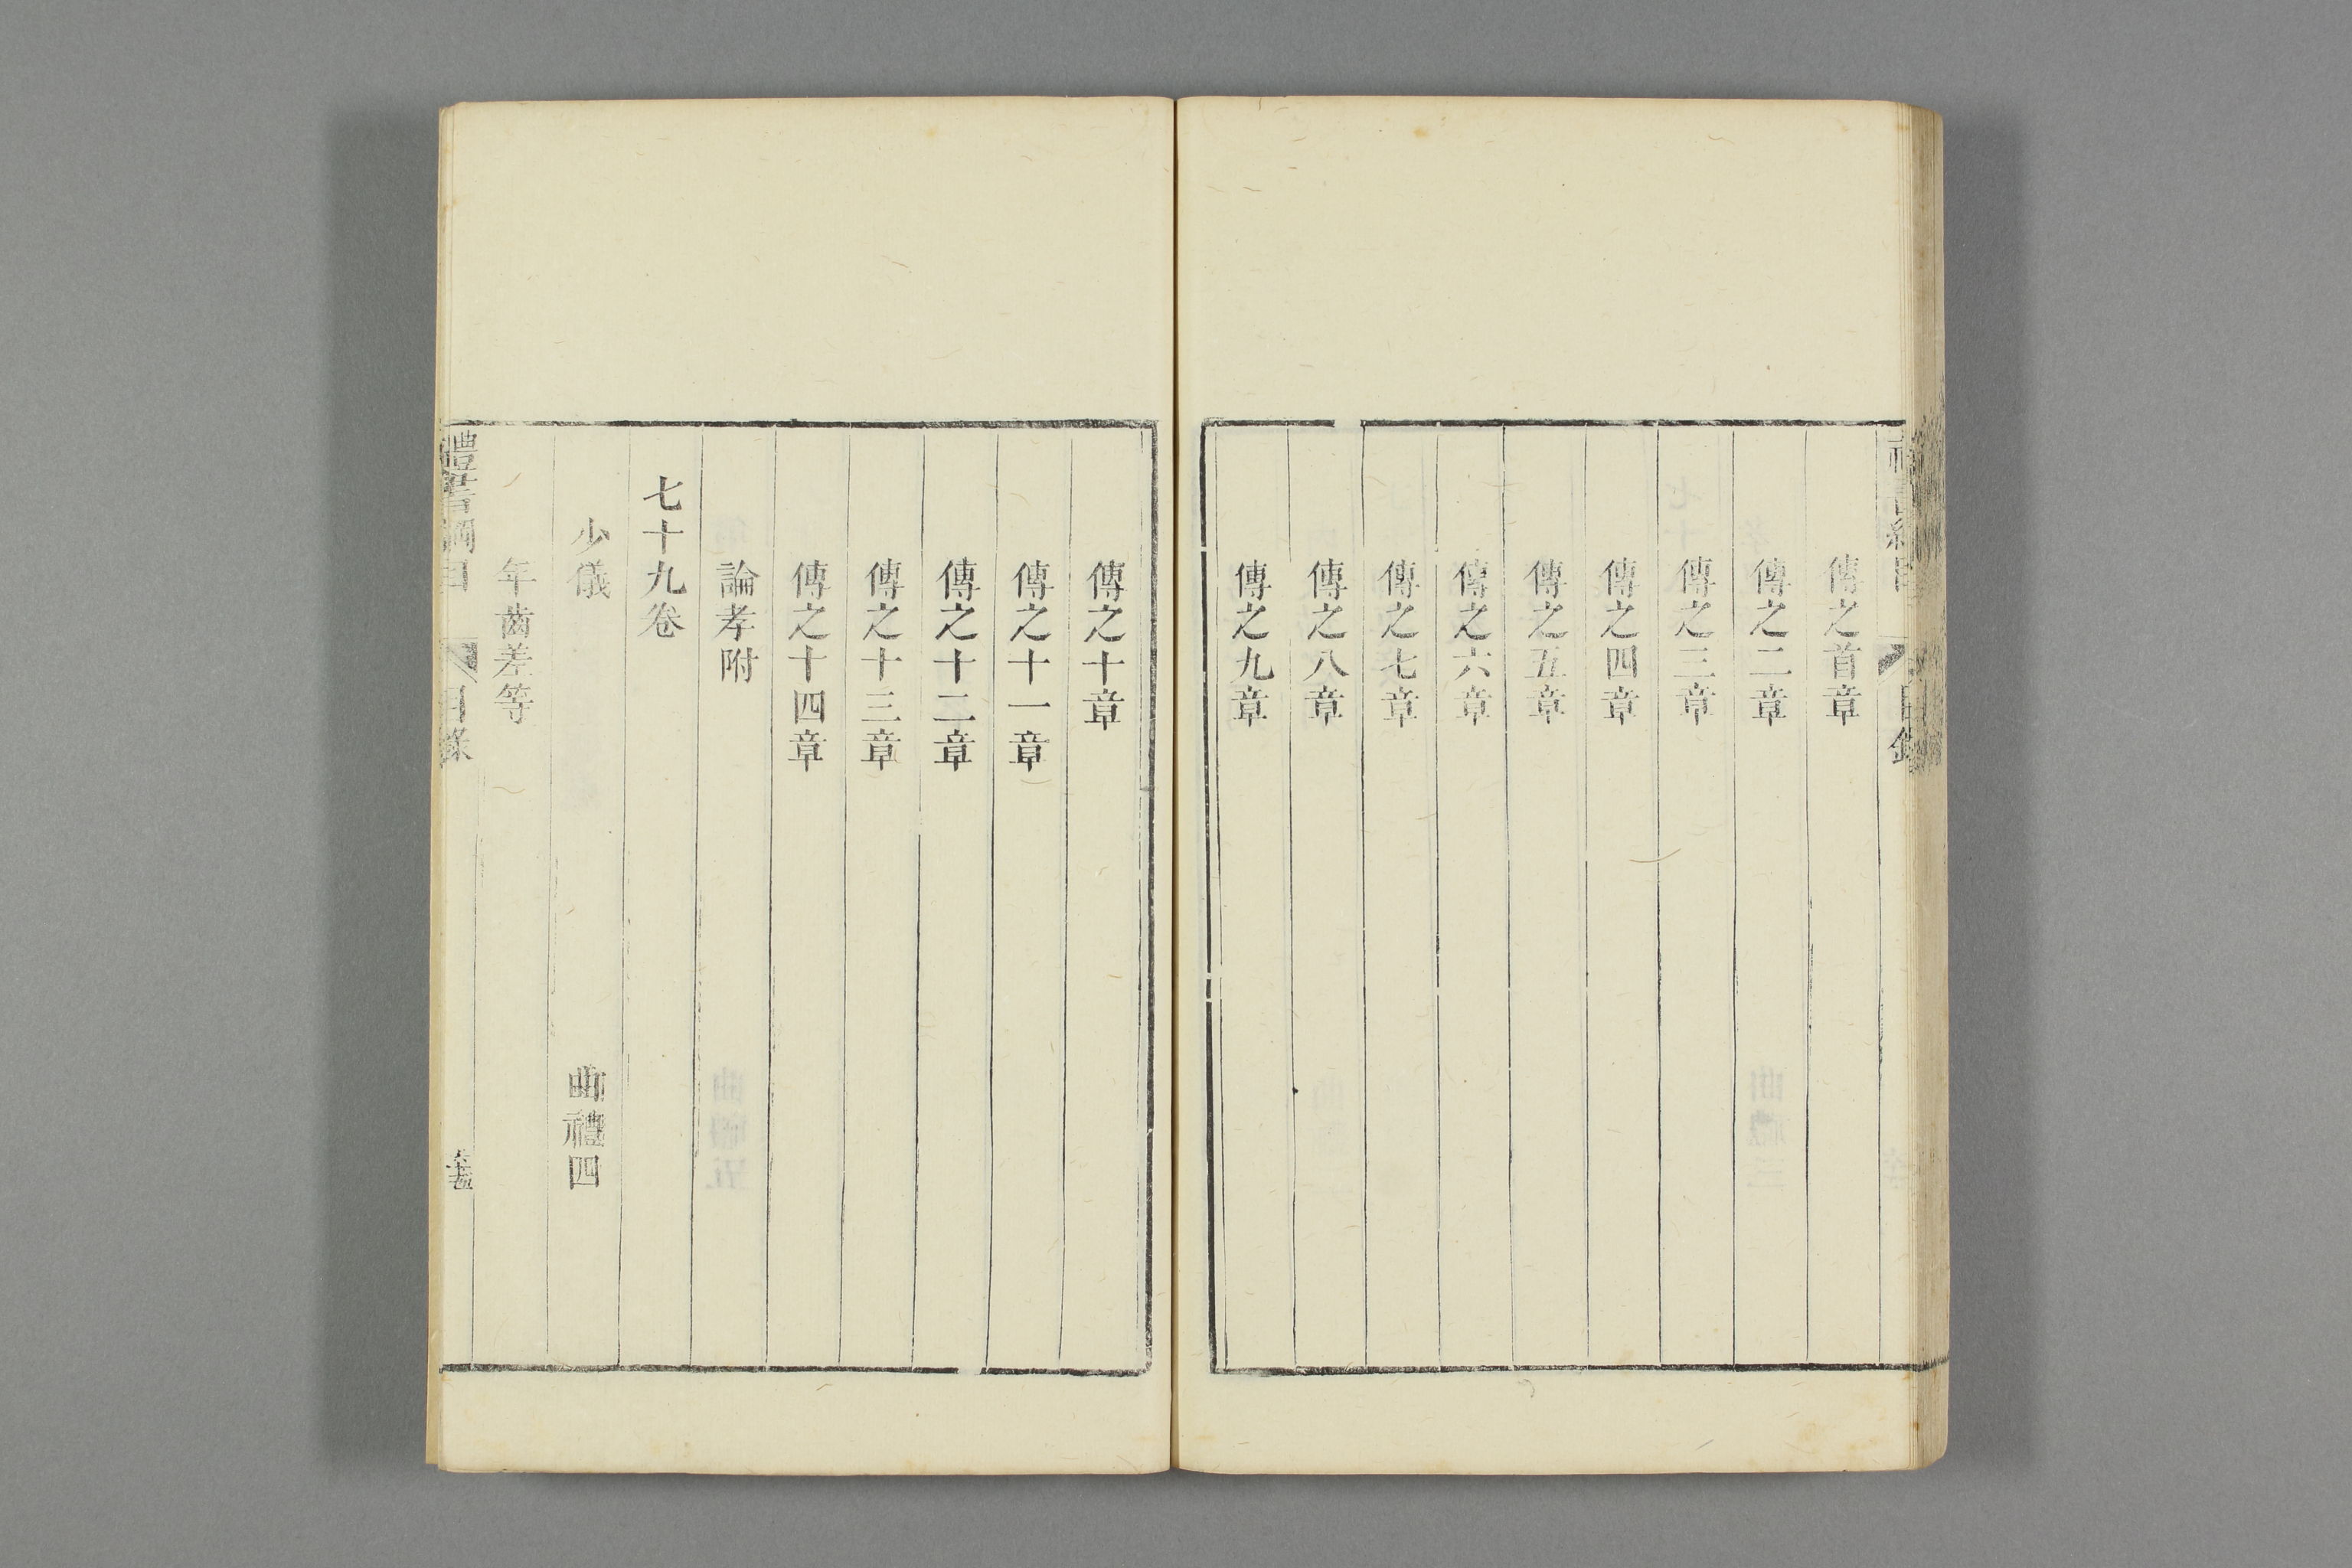 傳之首章
傳之二章
傳之三章
傳之四章
傳之五章
傳之六章
傳之七章
傳之八章
傳之九章
傳之十章
傳之十一章
傳之十二章
傳之十三章
傳之十四章
論孝附
七十九卷
少儀 曲禮四
年齒差等
禮書綱目 目錄